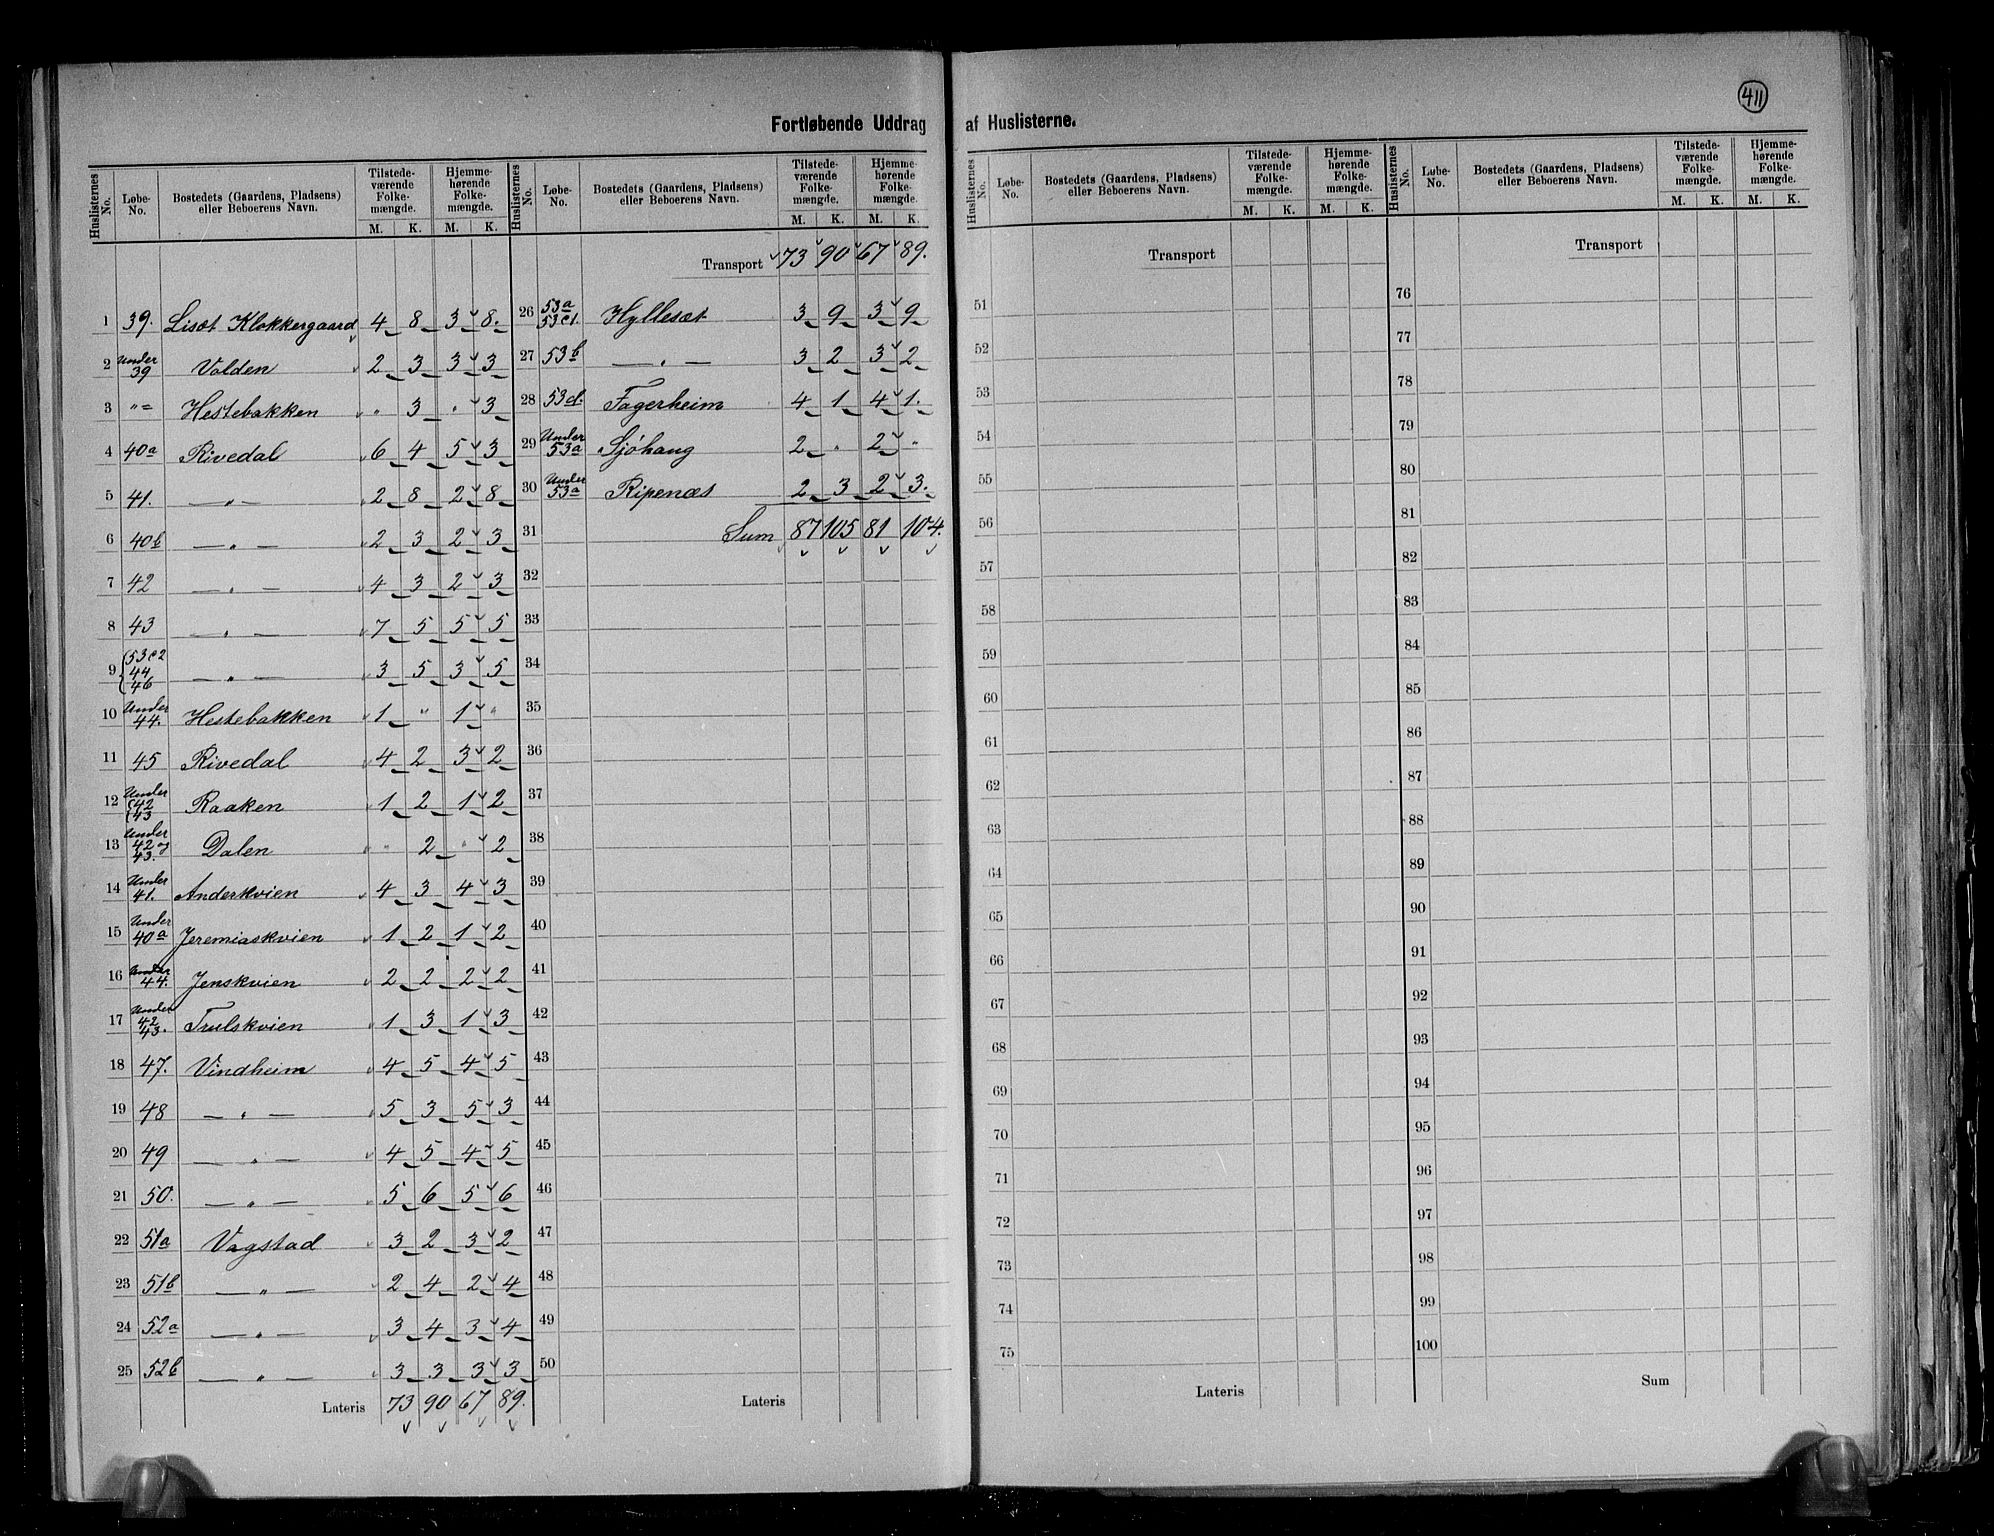 411
Fortløbende Uddrag af Huslisterne.
Huslisternes No. | Løbe-No. | Bostedets (Gaardens, Pladsens) eller Beboerens Navn. | Tilstedeværende Folkemængde. M. K. | Hjemmehørende Folkemængde. M. K.
1 39. Lisæt Klokkergaard 4 8 3 8.
2 Under 39 Volden 2 3 3 3
3 "= Hestebakken " 3 " 3
4 40a Rivedal 6 4 5 3
5 41. — " — 2 8 2 8
6 40b — " — 2 3 2 3
7 42 — " — 4 3 2 3
8 43 — " — 7 5 5 5
9 53c2 44 46 — " — 3 5 3 5
10 Under 44. Hestebakken 1 " 1 "
11 45 Rivedal 4 2 3 2
12 Under 42 43 Raaken 1 2 1 2
13 Under 42 og 43. Dalen " 2 " 2
14 Under 41. Anderskvien 4 3 4 3
15 Under 40a Jeremiaskvien 1 2 1 2
16 Under 44. Jenskvien 2 2 2 2
17 Under 42 43. Trulskvien 1 3 1 3
18 47. Vindheim 4 5 4 5
19 48 — " — 5 3 5 3
20 49 — " — 4 5 4 5
21 50. — " — 5 6 5 6
22 51a Vagstad 3 2 3 2
23 51b — " — 2 4 2 4
24 52a — " — 3 4 3 4
25 52b — " — 3 3 3 3
Lateris 73 90 67 89.
Huslisternes No. | Løbe-No. | Bostedets (Gaardens, Pladsens) eller Beboerens Navn. | Tilstedeværende Folkemængde. M. K. | Hjemmehørende Folkemængde. M. K.
Transport 73 90 67 89.
26 53a 53c1. Hyllesæt 3 9 3 9
27 53b — " — 3 2 3 2
28 53d. Fagerheim 4 1 4 1.
29 Under 53a Sjöhaug 2 " 2 "
30 Under 53a Ripenæs 2 3 2 3.
31 Sum 87 105 81 104.
32
33
34
35
36
37
38
39
40
41
42
43
44
45
46
47
48
49
50
Lateris
Huslisternes No. | Løbe-No. | Bostedets (Gaardens, Pladsens) eller Beboerens Navn. | Tilstedeværende Folkemængde. M. K. | Hjemmehørende Folkemængde. M. K.
Transport
51
52
53
54
55
56
57
58
59
60
61
62
63
64
65
66
67
68
69
70
71
72
73
74
75
Lateris
Huslisternes No. | Løbe-No. | Bostedets (Gaardens, Pladsens) eller Beboerens Navn. | Tilstedeværende Folkemængde. M. K. | Hjemmehørende Folkemængde. M. K.
Transport
76
77
78
79
80
81
82
83
84
85
86
87
88
89
90
91
92
93
94
95
96
97
98
99
100
Sum